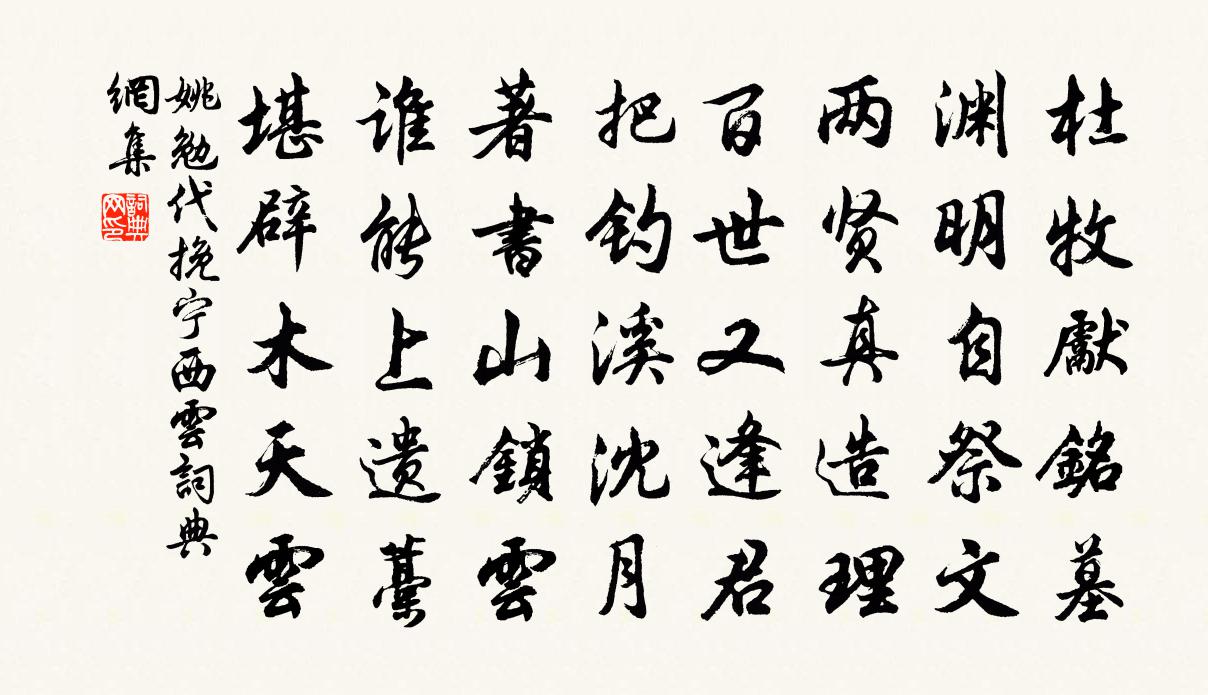 杜牧獻銘墓
渊明自祭文
两贤真造理
百世又逢君
把钓溪沈月
著書山鎖雲
谁能上遗藁
堪辟木天雲
姚勉代挽宁西雲詞典
網集
詞典
网印